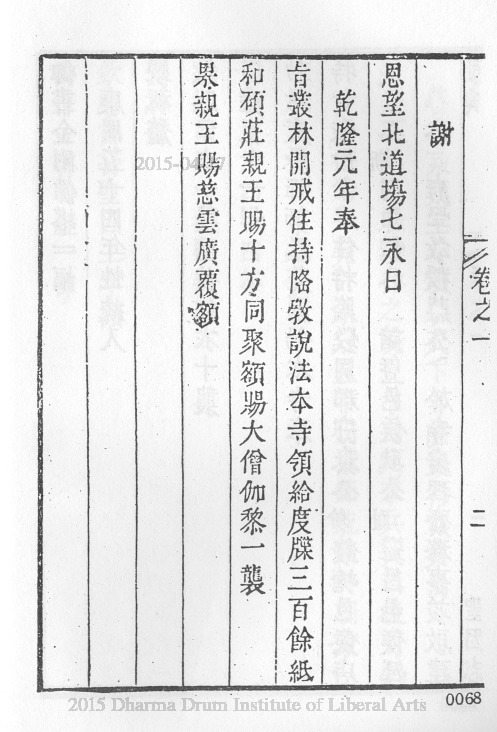 謝
恩望北道塲七永日
乾隆元年奉
旨叢林開戒住持隆敎說法本寺領給度牒三百餘紙
和碩莊親王賜十方同聚額賜大僧伽黎一襲
果親王賜慈雲廣覆額
卷之一
二
2015-04-17
0068
2015 Dharma Drum Institute of Liberal Arts